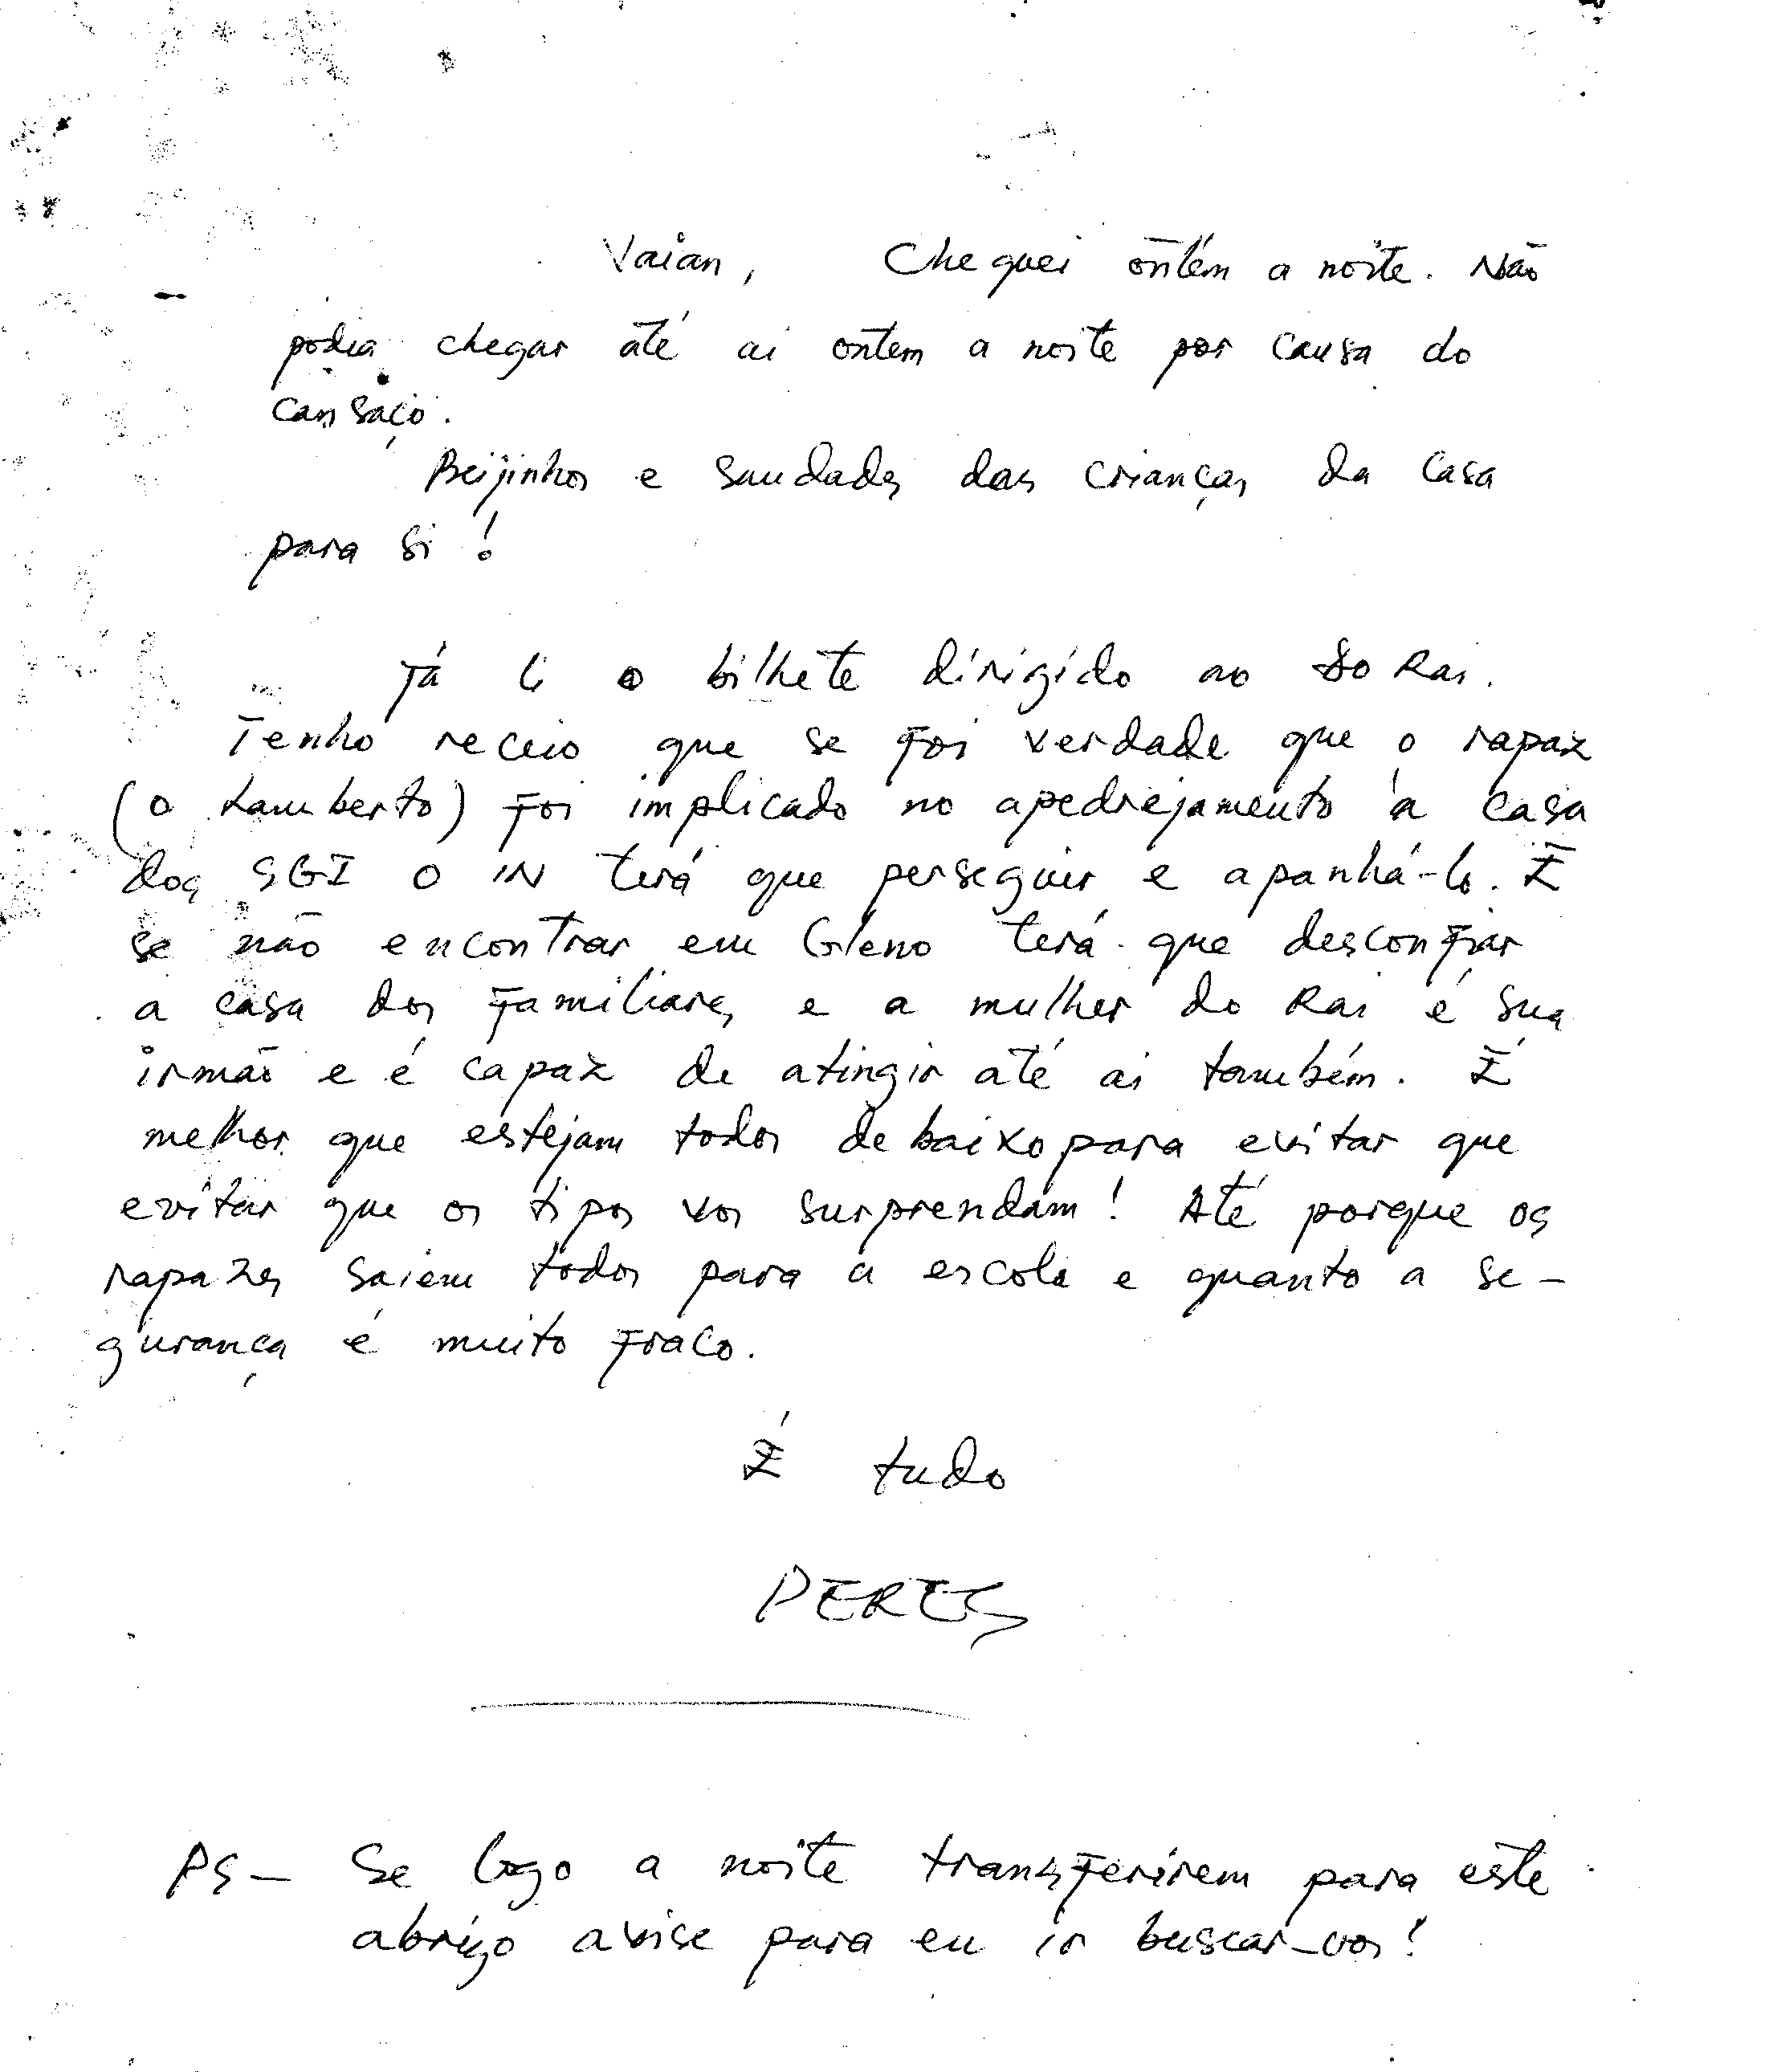 Vaian, Cheguei ontém a noite. Não
podia chegar até ai ontem a noite por causa do
cansaço.
Beijinhos e saudades das crianças da casa
para si!
Já li o bilhete dirigido ao Rai.
Tenho receio que se foi verdade que o rapaz
(o Lamberto) foi implicado no apedrejamento à casa
dos SGI o IN terá que perseguir e apanhá-lo. E
se não encontrar em Gleno terá que desconfiar
a casa dos familiares e a mulher do Rai é sua
irmão e é capaz de atingir até ai também. É
melhor que estejam todos debaixo para evitar que
evitar que os tipos vos surprendam! Até porque os
rapazes saiem todos para a escola e quanto a se-
gurança é muito fraco.
É tudo
PERES
PS - Se logo a noite transferirem para este
abrigo avise para eu ir buscar-vos!